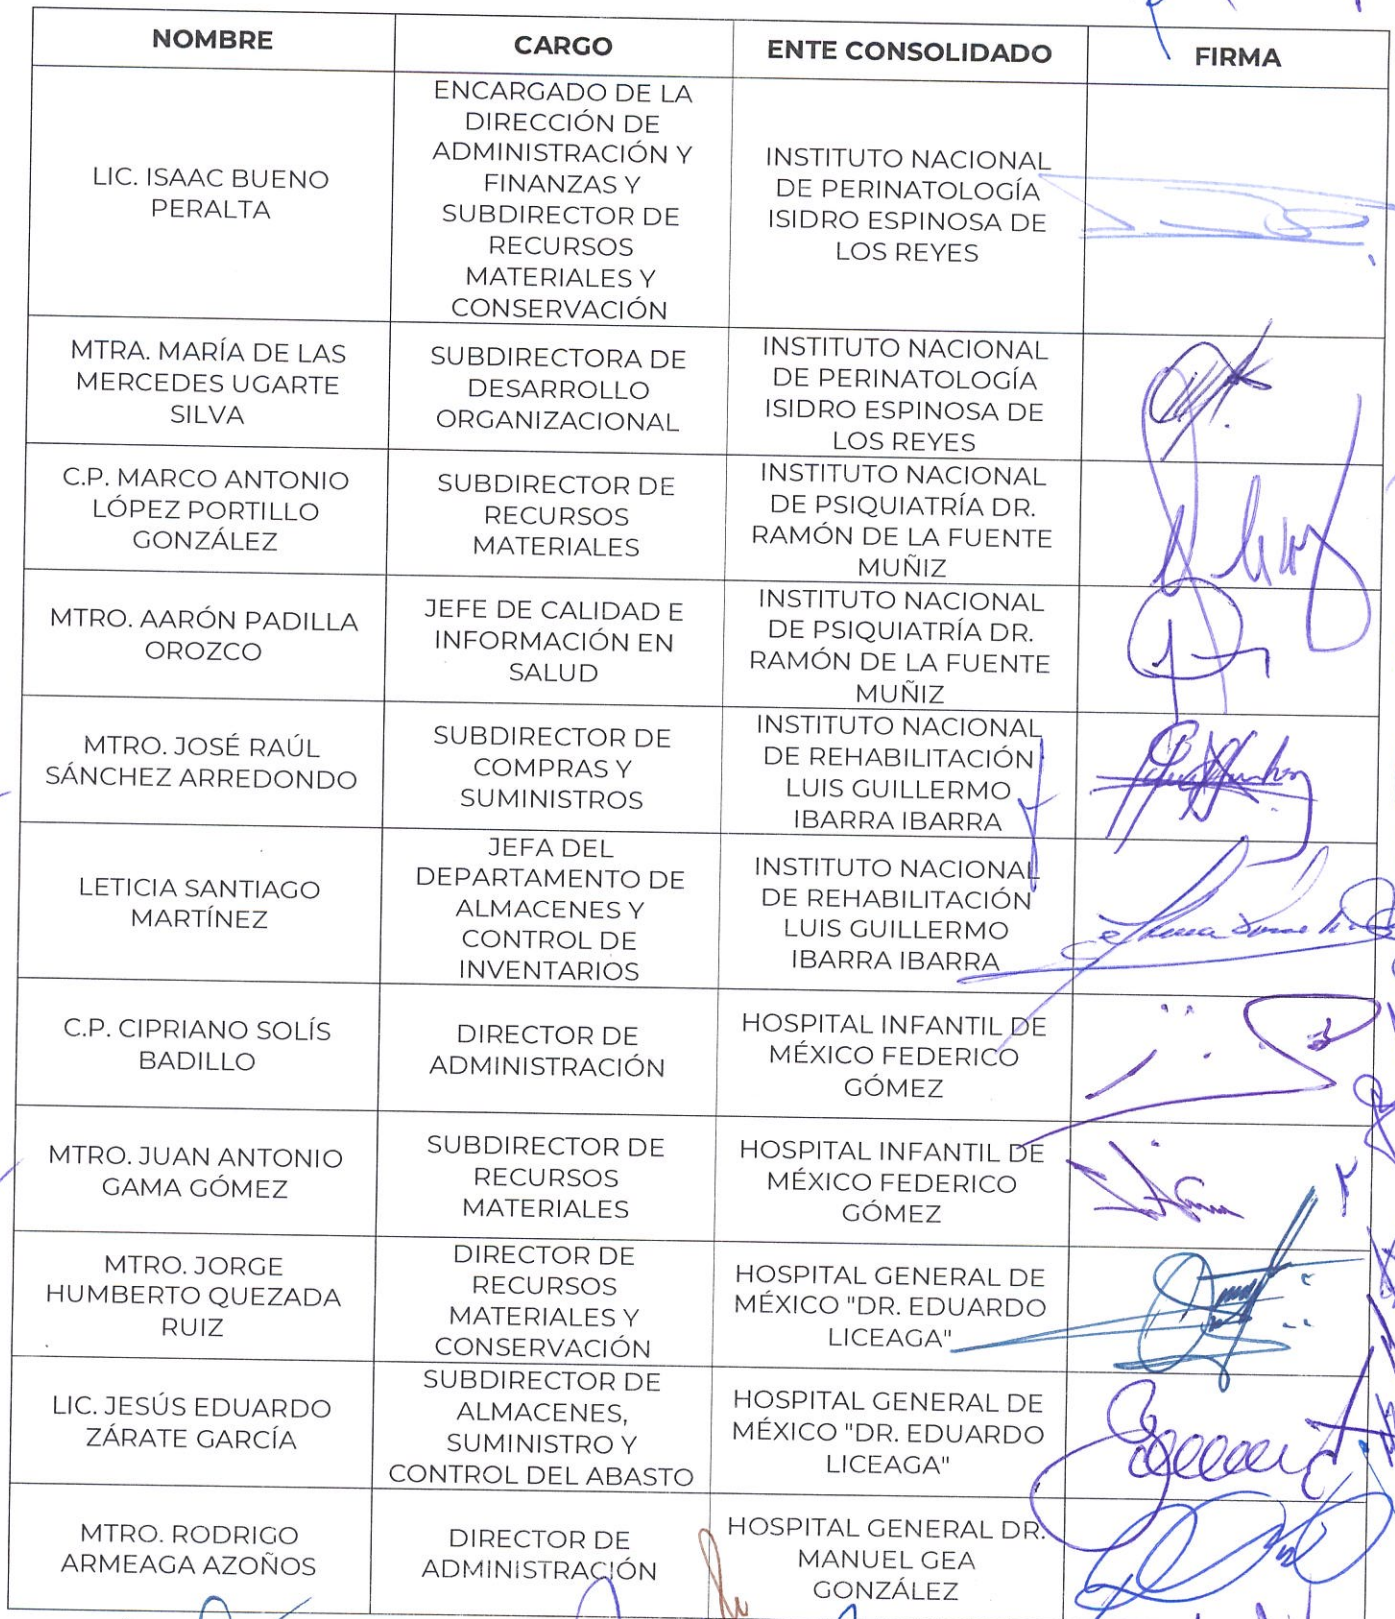 NOMBRE CARGO ENTE CONSOLIDADO FIRMA
LIC. ISAAC BUENO
PERALTA
ENCARGADO DE LA
DIRECCIÓN DE
ADMINISTRACIÓN Y
FINANZAS Y
SUBDIRECTOR DE
RECURSOS
MATERIALES Y
CONSERVACIÓN
INSTITUTO NACIONAL
DE PERINATOLOGÍA
ISIDRO ESPINOSA DE
LOS REYES
MTRA. MARÍA DE LAS
MERCEDES UGARTE
SILVA
SUBDIRECTORA DE
DESARROLLO
ORGANIZACIONAL
INSTITUTO NACIONAL
DE PERINATOLOGÍA
ISIDRO ESPINOSA DE
LOS REYES
C.P. MARCO ANTONIO
LÓPEZ PORTILLO
GONZÁLEZ
SUBDIRECTOR DE
RECURSOS
MATERIALES
INSTITUTO NACIONAL
DE PSIQUIATRÍA DR.
RAMÓN DE LA FUENTE
MUÑIZ
MTRO. AARÓN PADILLA
OROZCO
JEFE DE CALIDAD E
INFORMACIÓN EN
SALUD
INSTITUTO NACIONAL
DE PSIQUIATRÍA DR.
RAMÓN DE LA FUENTE
MUÑIZ
MTRO. JOSÉ RAÚL
SÁNCHEZ ARREDONDO
SUBDIRECTOR DE
COMPRAS Y
SUMINISTROS
INSTITUTO NACIONAL
DE REHABILITACIÓN
LUIS GUILLERMO
IBARRA IBARRA
LETICIA SANTIAGO
MARTÍNEZ
JEFA DEL
DEPARTAMENTO DE
ALMACENES Y
CONTROL DE
INVENTARIOS
INSTITUTO NACIONAL
DE REHABILITACIÓN
LUIS GUILLERMO
IBARRA IBARRA
C.P. CIPRIANO SOLÍS
BADILLO
DIRECTOR DE
ADMINISTRACIÓN
HOSPITAL INFANTIL DE
MÉXICO FEDERICO
GÓMEZ
MTRO. JUAN ANTONIO
GAMA GÓMEZ
SUBDIRECTOR DE
RECURSOS
MATERIALES
HOSPITAL INFANTIL DE
MÉXICO FEDERICO
GÓMEZ
MTRO. JORGE
HUMBERTO QUEZADA
RUIZ
DIRECTOR DE
RECURSOS
MATERIALES Y
CONSERVACIÓN
HOSPITAL GENERAL DE
MÉXICO "DR. EDUARDO
LICEAGA"
LIC. JESÚS EDUARDO
ZÁRATE GARCÍA
SUBDIRECTOR DE
ALMACENES,
SUMINISTRO Y
CONTROL DEL ABASTO
HOSPITAL GENERAL DE
MÉXICO "DR. EDUARDO
LICEAGA"
MTRO. RODRIGO
ARMEAGA AZOÑOS
DIRECTOR DE
ADMINISTRACIÓN
HOSPITAL GENERAL DR.
MANUEL GEA
GONZÁLEZ